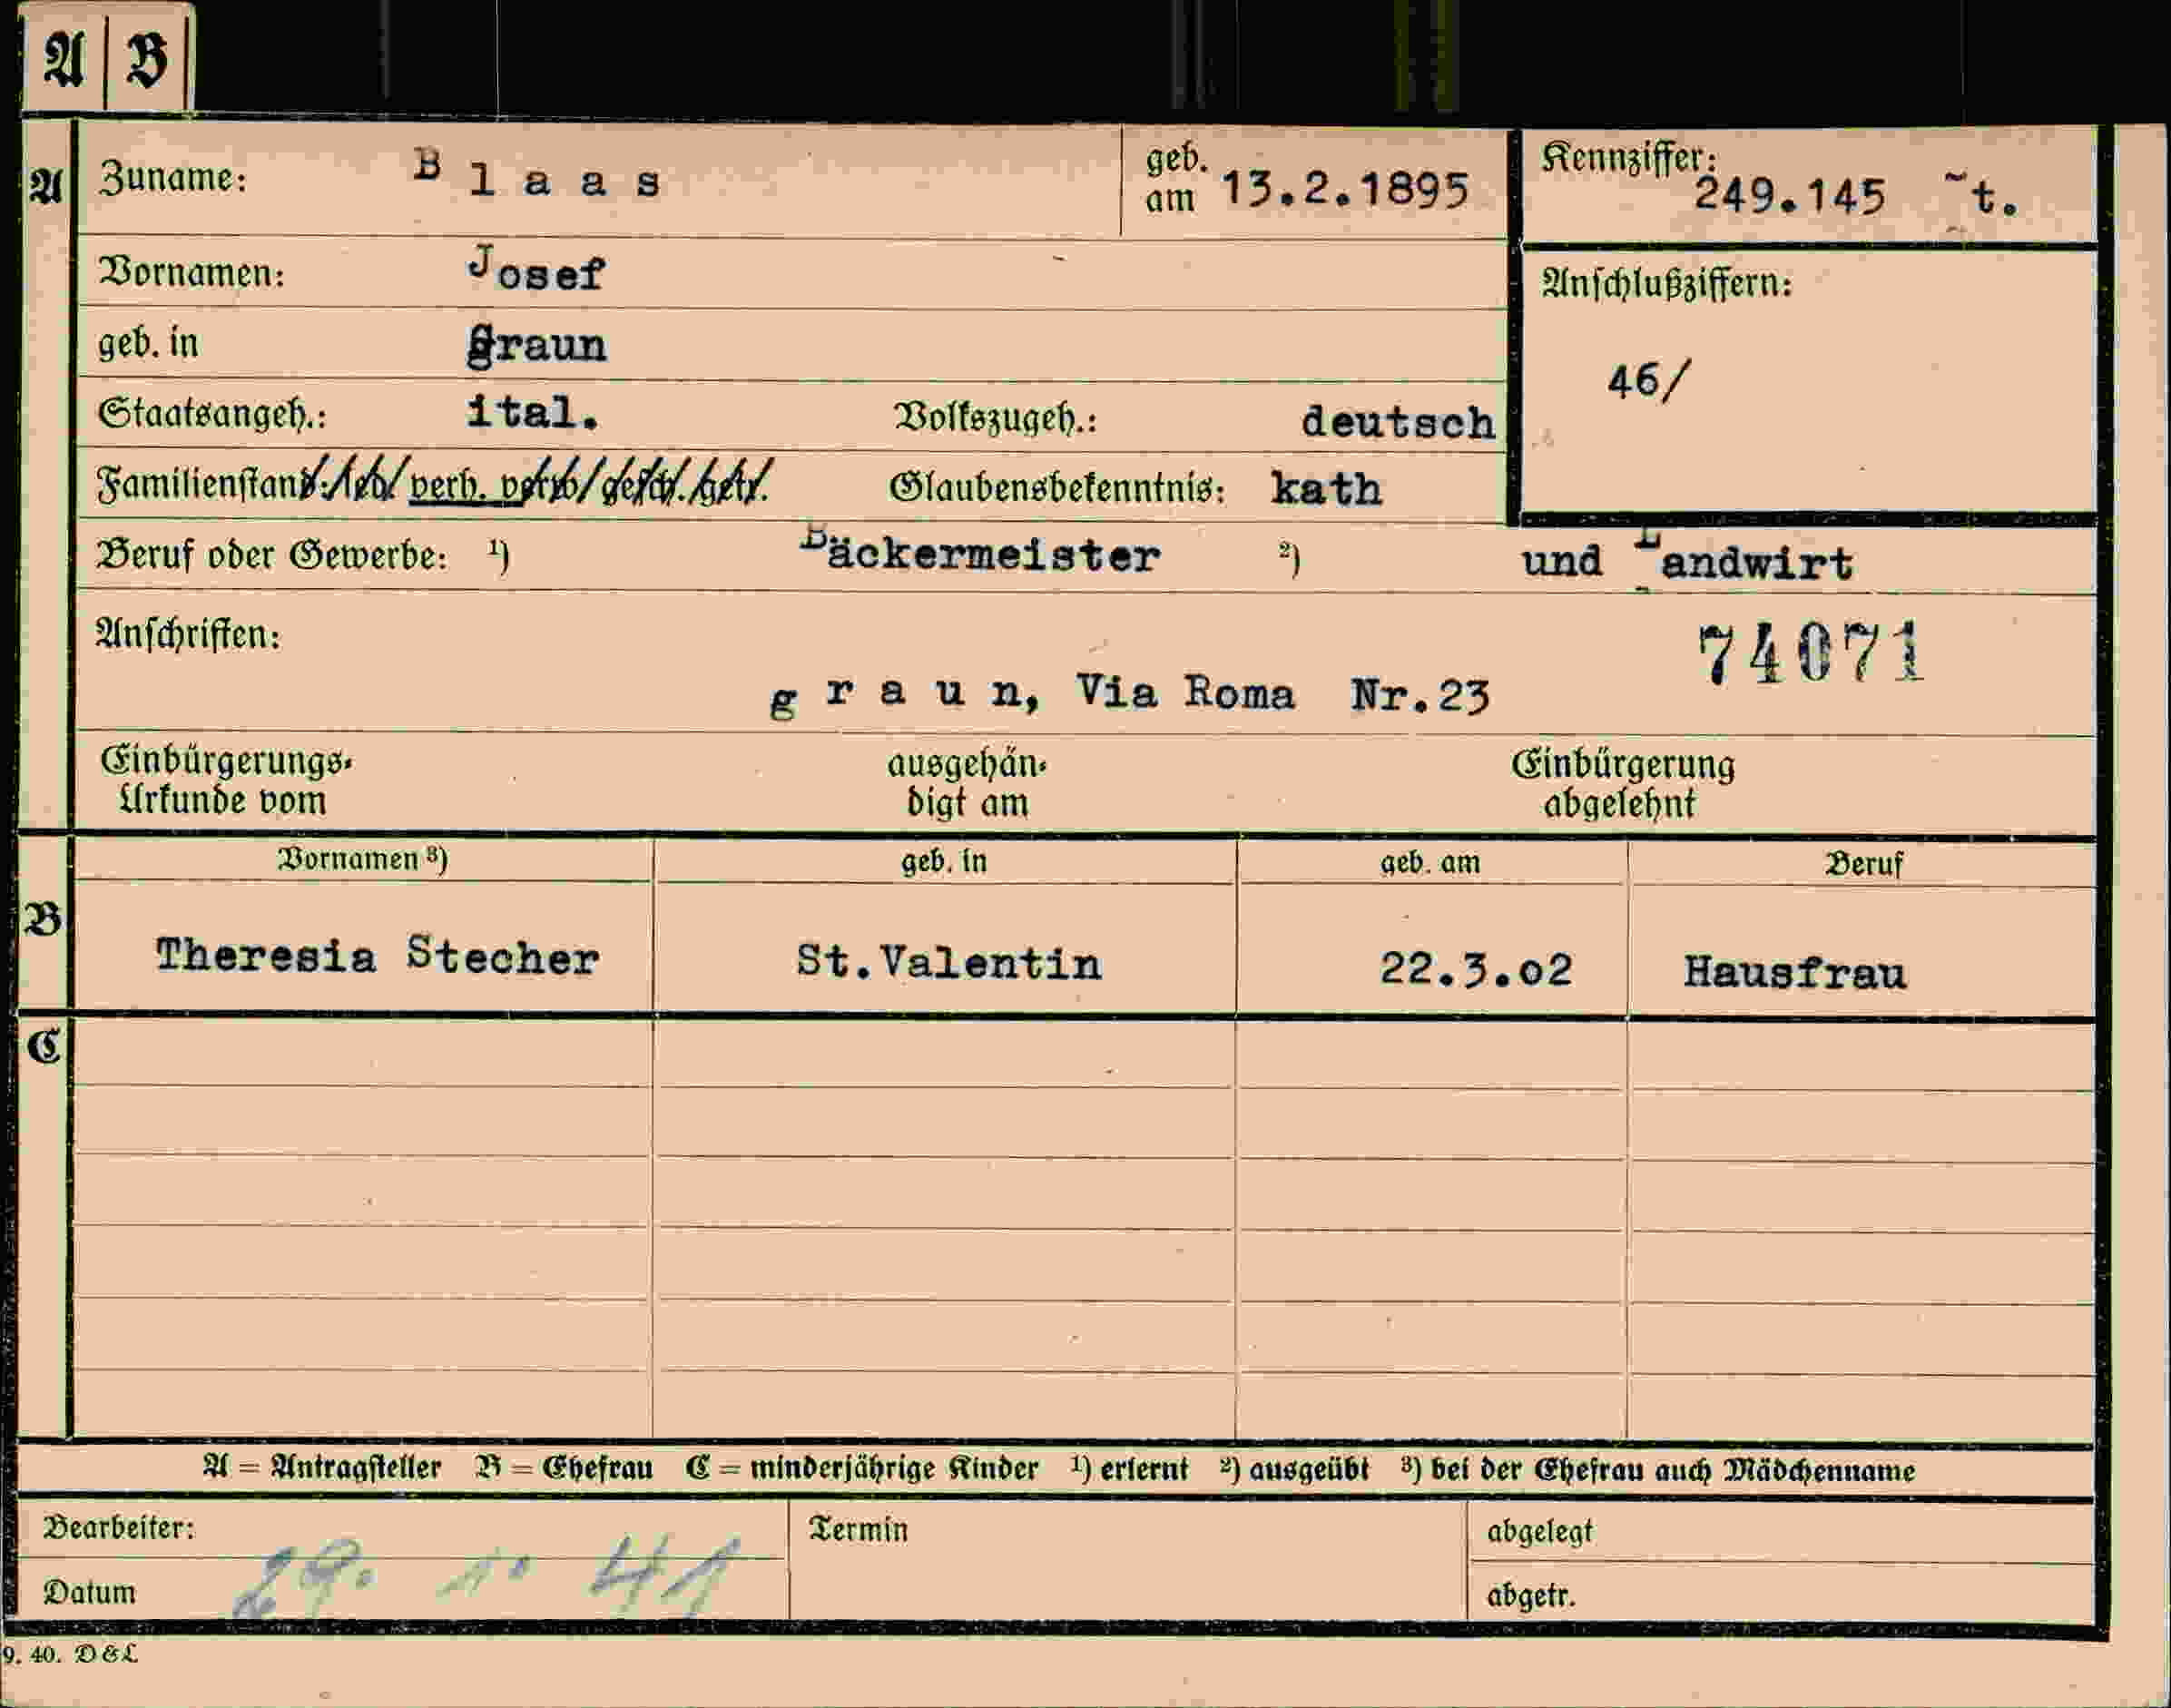 A B
A Zuname: B l a a s geb. am 13.2.1895 Kennziffer: 249.145 ~t.
Vornamen: Josef Anschlußziffern:
geb. in graun 46/
Staatsangeh.: ital. Volkszugeh.: deutsch
Familienstand: led. verh. verw. gesch. getr. Glaubensbekenntnis: kath
Beruf oder Gewerbe: ¹) Bäckermeister ²) und Landwirt
Anschriften: 74071
g r a u n, Via Roma Nr.23
Einbürgerungs- ausgehän- Einbürgerung
Urkunde vom digt am abgelehnt
Vornamen ³) geb. in geb. am Beruf
B Theresia Stecher St.Valentin 22.3.o2 Hausfrau
C
A = Antragsteller B = Ehefrau C = minderjährige Kinder ¹) erlernt ²) ausgeübt ³) bei der Ehefrau auch Mädchenname
Bearbeiter: Termin abgelegt
Datum 29. 1. 41 abgetr.
9. 40. D & L